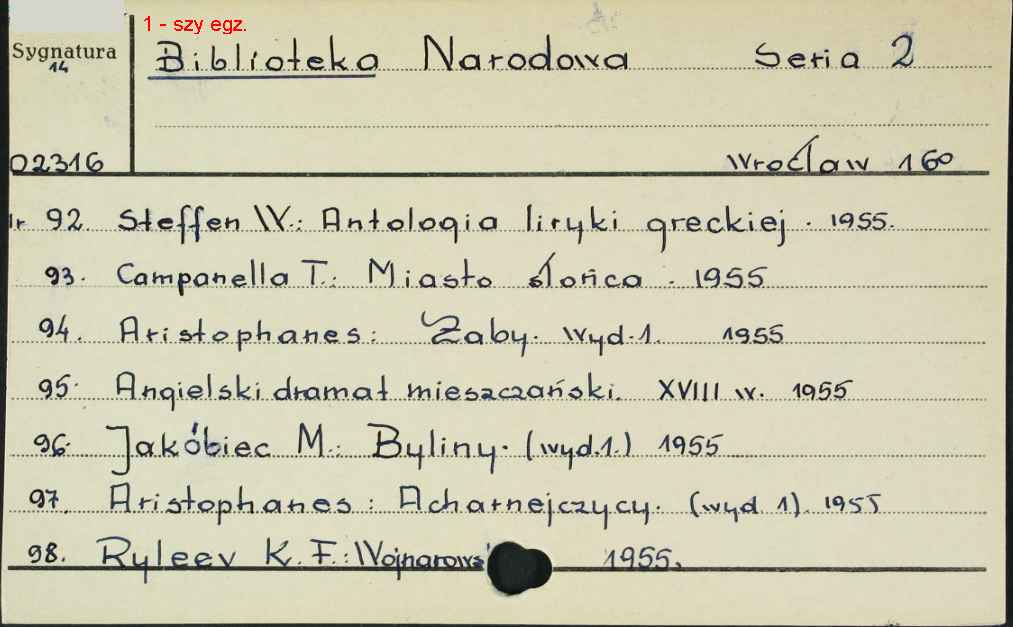 1 - szy egz.
Sygnatura
14
Biblioteka Narodowa Seria 2
02316
Wrocław 160
Nr 92. Steffen W.: Antologia liryki greckiej. 1955.
93. Campanella T.: Miasto słońca. 1955
94. Aristophanes: Żaby. wyd.1. 1955
95. Angielski dramat mieszczański. XVIII w. 1955
96. Jakóbiec M.: Byliny. (wyd.1.) 1955
97. Aristophanes: Acharnejczycy. (wyd. 1). 1955
98. Ryleev K. F.: 1955.